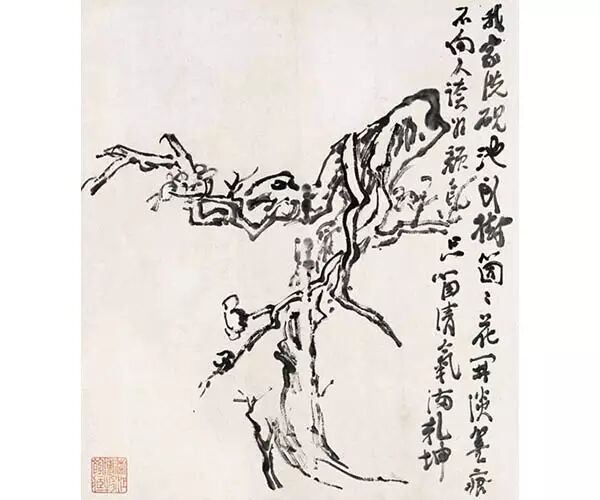 我家洗硯池頭樹箇〻花開淡墨痕
不向人誇好顏色只留清氣滿乾坤